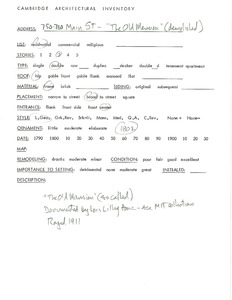 CAMBRIDGE ARCHITECTURAL INVENTORY
ADDRESS: 750-760 Main St - "The Old Mansion" (demolished)
USE: residential commercial religious
STORIES: 1 2 3 4 5
TYPE: single double row duplex decker double d tenement apartment
ROOF: hip gable front gable flank mansard flat
MATERIAL: wood brick SIDING: original subsequent
PLACEMENT: narrow to street broad to street square
ENTRANCE: flank front side front center
STYLE:
ORNAMENT: little moderate elaborate 1807
DATE: 1790 1800 10 20 30 40 50 60 70 80 90 1900 10 20
MAP:
REMODELING: drastic moderate minor CONDITION: poor fair good excellent
IMPORTANCE TO SETTING: detrimental none moderate great INITIALED:
DESCRIPTION:
"The Old Mansion" (so called)
Documented by Lois Lilley Howe - see MIT collection
Razed 1911